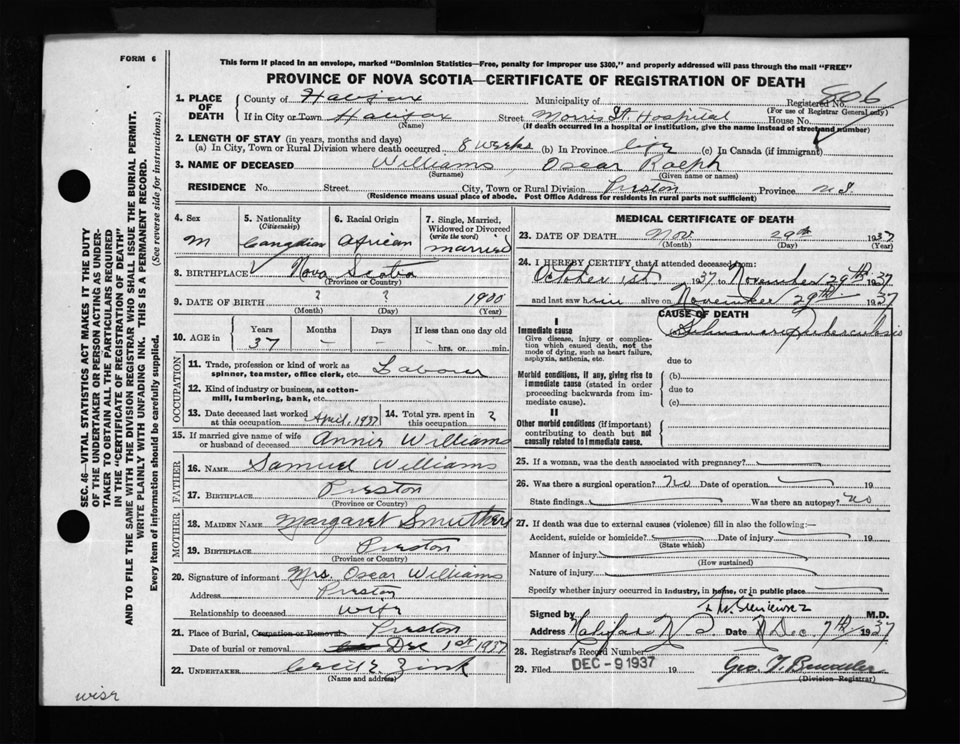 FORM 6
This form if placed in an envelope, marked "Dominion Statistics—Free, penalty for improper use $300," and properly addressed will pass through the mail "FREE"
PROVINCE OF NOVA SCOTIA—CERTIFICATE OF REGISTRATION OF DEATH
1. PLACE OF DEATH { County of Halifax Municipality of Registered No. 806
(For use of Registrar General only)
If in City or Town Halifax Street Morris St. Hospital House No.
(Name) (If death occurred in a hospital or institution, give the name instead of street and number)
2. LENGTH OF STAY (in years, months and days)
(a) In City, Town or Rural Division where death occurred 8 weeks (b) In Province life (c) In Canada (if immigrant)
3. NAME OF DECEASED Williams, Oscar Ralph
(Surname) (Given name or names)
RESIDENCE No. Street City, Town or Rural Division Preston Province N S
(Residence means usual place of abode. Post Office Address for residents in rural parts not sufficient)
4. Sex M
5. Nationality (Citizenship) Canadian
6. Racial Origin African
7. Single, Married, Widowed or Divorced (write the word) married
8. BIRTHPLACE Nova Scotia
(Province or Country)
9. DATE OF BIRTH ? ? 1900
(Month) (Day) (Year)
10. AGE in { Years 37 Months – Days – If less than one day old hrs. or min.
OCCUPATION
11. Trade, profession or kind of work as spinner, teamster, office clerk, etc. Labour
12. Kind of industry or business, as cotton-mill, lumbering, bank, etc.
13. Date deceased last worked at this occupation April, 1937
14. Total yrs. spent in this occupation ?
15. If married give name of wife or husband of deceased Annie Williams
FATHER
16. NAME Samuel Williams
17. BIRTHPLACE Preston
(Province or Country)
MOTHER
18. MAIDEN NAME Margaret Smithers
19. BIRTHPLACE Preston
(Province or Country)
20. Signature of informant Mrs. Oscar Williams
Address Preston
Relationship to deceased wife
21. Place of Burial, Cremation or Removal Preston
Date of burial or removal Dec 1st 1937
22. UNDERTAKER Cecil E. Zink
(Name and address)
MEDICAL CERTIFICATE OF DEATH
23. DATE OF DEATH Nov. 29th 1937
(Month) (Day) (Year)
24. I HEREBY CERTIFY, that I attended deceased from:
October 1st 1937 to November 29th 1937
and last saw him alive on November 29th 1937
CAUSE OF DEATH
I
Immediate cause
Give disease, injury or complication which caused death, not the mode of dying, such as heart failure, asphyxia, asthenia, etc.
(a) Pulmonary Tuberculosis
due to
Morbid conditions, if any, giving rise to immediate cause (stated in order proceeding backwards from immediate cause).
(b)
due to
(c)
II
Other morbid conditions (if important) contributing to death but not causally related to immediate cause.
25. If a woman, was the death associated with pregnancy?
26. Was there a surgical operation? No Date of operation 19
State findings Was there an autopsy? no
27. If death was due to external causes (violence) fill in also the following:—
Accident, suicide or homicide? Date of injury 19
(State which)
Manner of injury
(How sustained)
Nature of injury
Specify whether injury occurred in industry, in home, or in public place
Signed by M.D.
Address Halifax N.S. Date Dec. 7th 1937
28. Registrar's Record Number
29. Filed DEC -9 1937 19
(Division Registrar)
SEC. 46—VITAL STATISTICS ACT MAKES IT THE DUTY
OF THE UNDERTAKER OR PERSON ACTING AS UNDER-
TAKER TO OBTAIN ALL THE PARTICULARS REQUIRED
IN THE "CERTIFICATE OF REGISTRATION OF DEATH"
AND TO FILE THE SAME WITH THE DIVISION REGISTRAR WHO SHALL ISSUE THE BURIAL PERMIT.
WRITE PLAINLY WITH UNFADING INK. THIS IS A PERMANENT RECORD.
Every item of information should be carefully supplied. (See reverse side for instructions.)